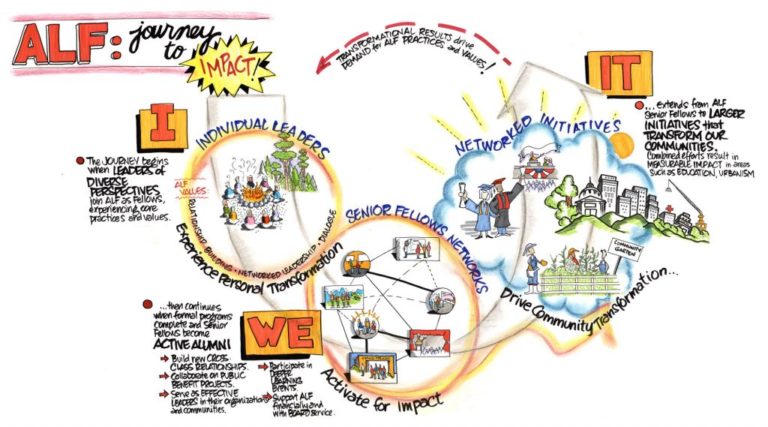 ALF: journey
to
IMPACT!
TRANSFORMATIONAL RESULTS drive
DEMAND for ALF PRACTICES and VALUES!
I
The JOURNEY begins
when LEADERS of
DIVERSE
PERSPECTIVES
join ALF as Fellows,
experiencing core
practices and values.
INDIVIDUAL LEADERS
ALF
VALUES:
RELATIONSHIP BUILDING • NETWORKED LEADERSHIP • DIALOGUE
Experience Personal Transformation
WE
...then continues
when formal programs
complete and Senior
Fellows become
ACTIVE ALUMNI
Build new CROSS
CLASS RELATIONSHIPS.
Collaborate on PUBLIC
BENEFIT PROJECTS.
Serve as EFFECTIVE
LEADERS in their organizations
and communities.
Participate in
DEEPER
LEARNING
EVENTS.
Support ALF
financially and
with BOARD service.
SENIOR FELLOWS NETWORKS
Activate for Impact
IT
...extends from ALF
Senior Fellows to LARGER
INITIATIVES that
TRANSFORM OUR
COMMUNITIES.
Combined efforts result in
MEASURABLE IMPACT in areas
such as EDUCATION, URBANISM
NETWORKED INITIATIVES
COMMUNITY
GARDEN
Drive Community Transformation...